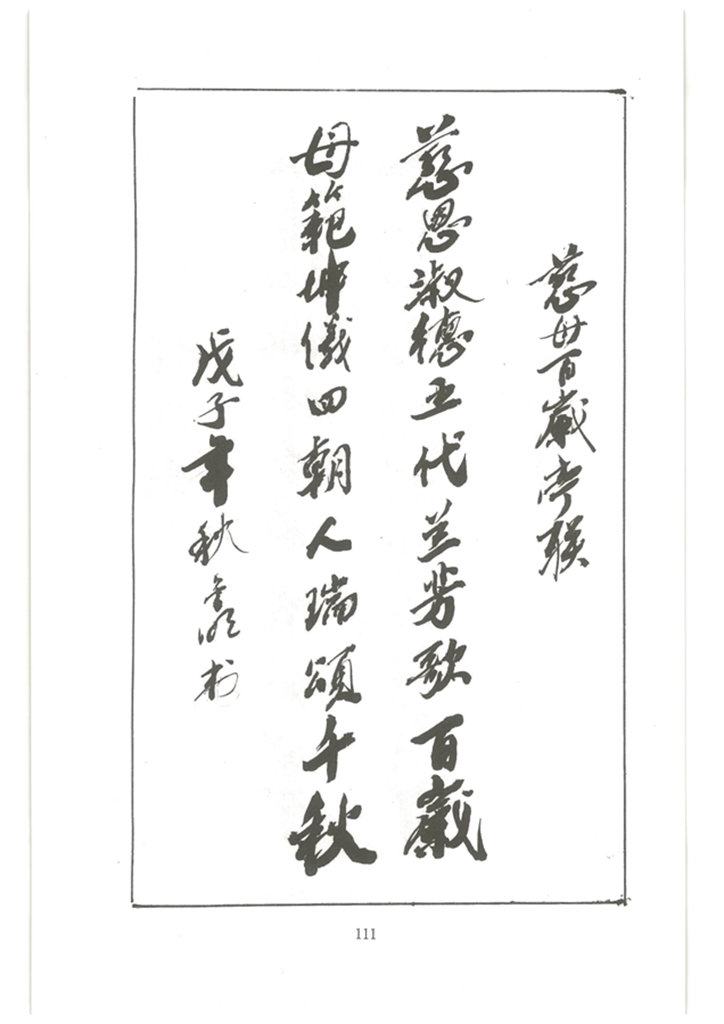 慈母百歲亭联
慈恩淑德五代兰芳歌百歲
母範坤儀四朝人瑞頌千秋
戊子年秋
111